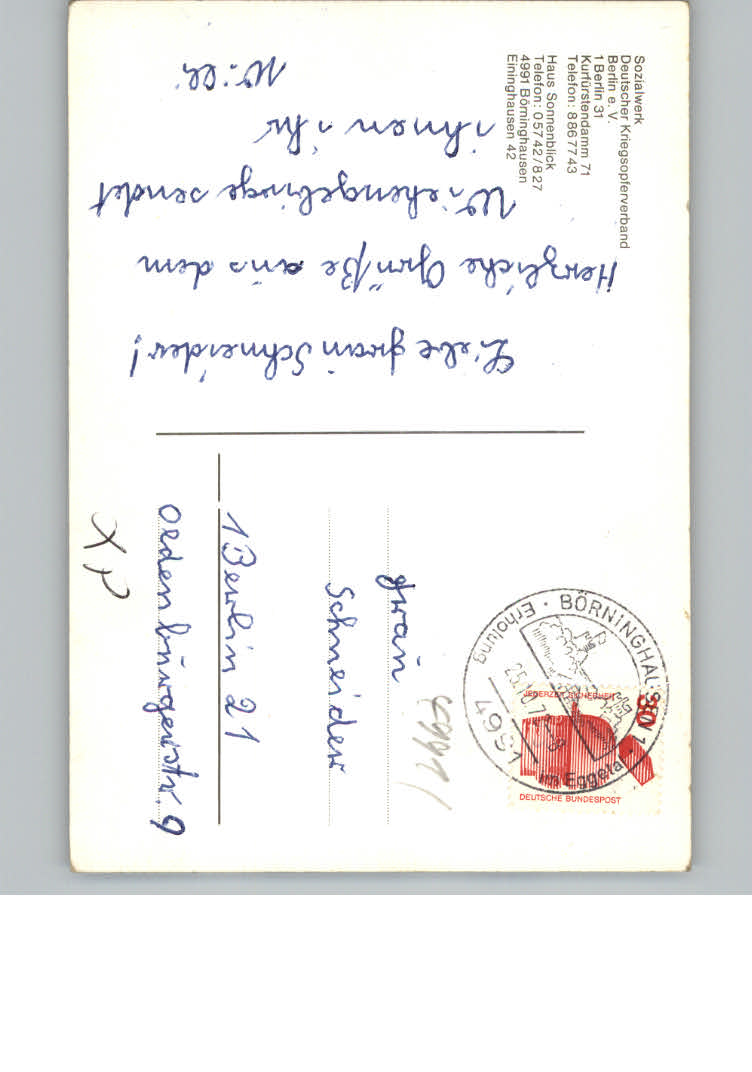 Sozialwerk
Deutscher Kriegsopferverband
Berlin e. V.
1 Berlin 31
Kurfürstendamm 71
Telefon: 8 86 77 43
Haus Sonnenblick
Telefon: 0 57 42 / 8 27
4991 Börninghausen
Eininghausen 42
Liebe Frau Schneider!
Herzliche Grüße aus dem
Wiehengebirge sendet
ihnen ihr
Willi
Frau
Schneider
1 Berlin 21
Oldenburgerstr. 9
BÖRNINGHAUSEN 1
Erholung
im Eggetal
4991
30
JEDERZEIT SICHERHEIT
DEUTSCHE BUNDESPOST